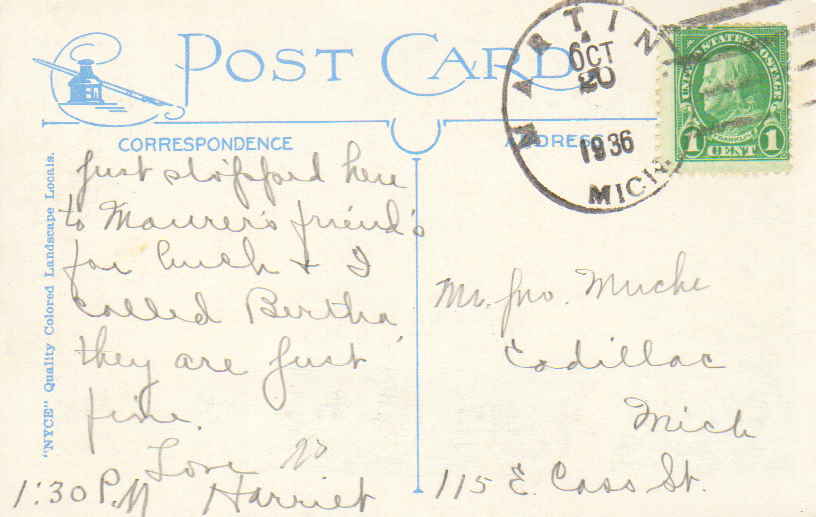 POST CARD
CORRESPONDENCE
ADDRESS
MARTIN
OCT
20
1936
MICH.
UNITED STATES POSTAGE
FRANKLIN
1 CENT 1
"NYCE" Quality Colored Landscape Locals.
Just stopped here
to Maurer's friend's
for lunch & I
called Bertha
they are just
fine.
Love
1:30 P.M Harriet
Mr. Jno. Muche
Cadillac
Mich
115 E. Cass St.